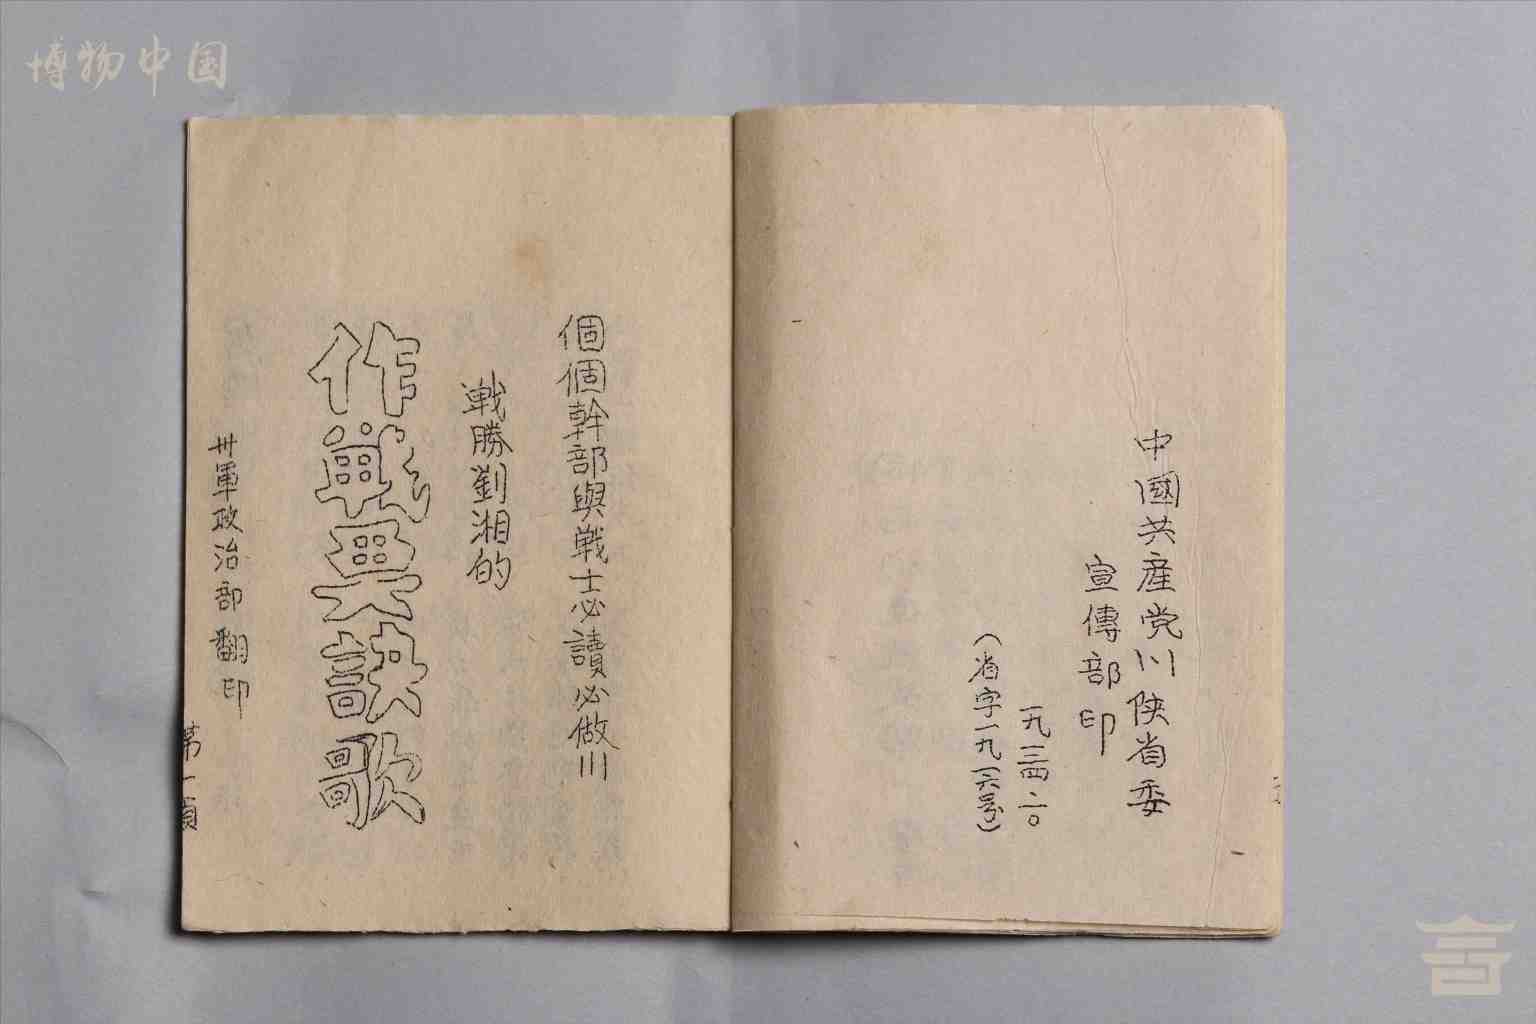 博物中国
中國共産党川陕省委
宣傳部印
一九三四
(省字一九一六号)
個個幹部與戦士必讀必做!!!
戦勝劉湘的
作戦要訣歌
卅軍政治部翻印
第一頁